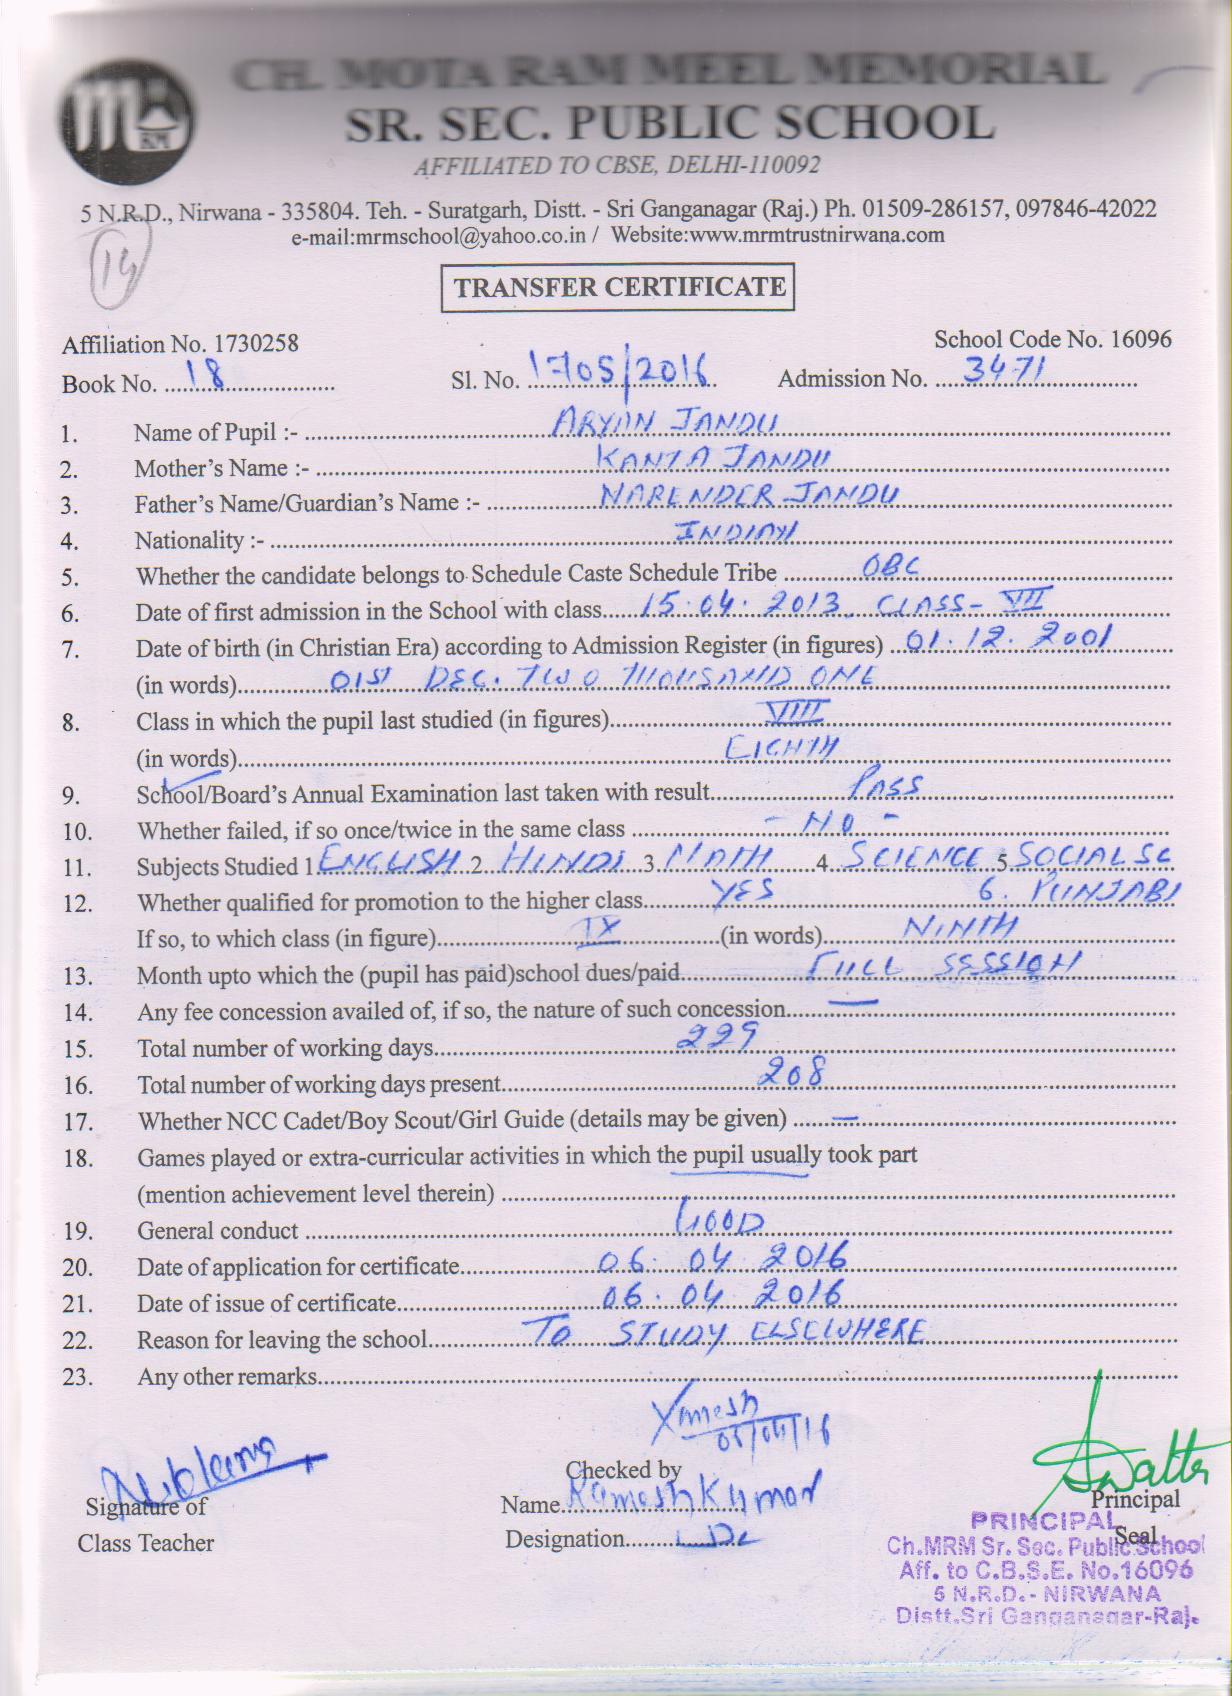 CH. MOTA RAM MEEL MEMORIAL
SR. SEC. PUBLIC SCHOOL
AFFILIATED TO CBSE, DELHI-110092
5 N.R.D., Nirwana - 335804. Teh. - Suratgarh, Distt. - Sri Ganganagar (Raj.) Ph. 01509-286157, 097846-42022
e-mail:mrmschool@yahoo.co.in / Website:www.mrmtrustnirwana.com
TRANSFER CERTIFICATE
Affiliation No. 1730258 School Code No. 16096
Book No. 18 Sl. No. 1705/2016 Admission No. 3471
1. Name of Pupil :- ARYAN JANDU
2. Mother's Name :- KANTA JANDU
3. Father's Name/Guardian's Name :- NARENDER JANDU
4. Nationality :- INDIAN
5. Whether the candidate belongs to Schedule Caste Schedule Tribe OBC
6. Date of first admission in the School with class 15.04.2013. CLASS-VII
7. Date of birth (in Christian Era) according to Admission Register (in figures) 01.12.2001
(in words) 01ST DEC. TWO THOUSAND ONE
8. Class in which the pupil last studied (in figures) VIII
(in words) EIGHTH
9. School/Board's Annual Examination last taken with result PASS
10. Whether failed, if so once/twice in the same class - NO -
11. Subjects Studied 1. ENGLISH 2. HINDI 3. MATH 4. SCIENCE 5. SOCIAL SC
12. Whether qualified for promotion to the higher class YES 6. PUNJABI
If so, to which class (in figure) IX (in words) NINTH
13. Month upto which the (pupil has paid)school dues/paid FULL SESSION
14. Any fee concession availed of, if so, the nature of such concession —
15. Total number of working days 229
16. Total number of working days present 208
17. Whether NCC Cadet/Boy Scout/Girl Guide (details may be given) —
18. Games played or extra-curricular activities in which the pupil usually took part
(mention achievement level therein)
19. General conduct GOOD
20. Date of application for certificate 06.04.2016
21. Date of issue of certificate 06.04.2016
22. Reason for leaving the school TO STUDY ELSEWHERE
23. Any other remarks
Signature of
Class Teacher
Checked by
Name Ramesh Kumar
Designation
Principal
Seal
PRINCIPAL
Ch.MRM Sr. Sec. Public School
Aff. to C.B.S.E. No.16096
5 N.R.D.- NIRWANA
Distt.Sri Ganganagar-Raj.